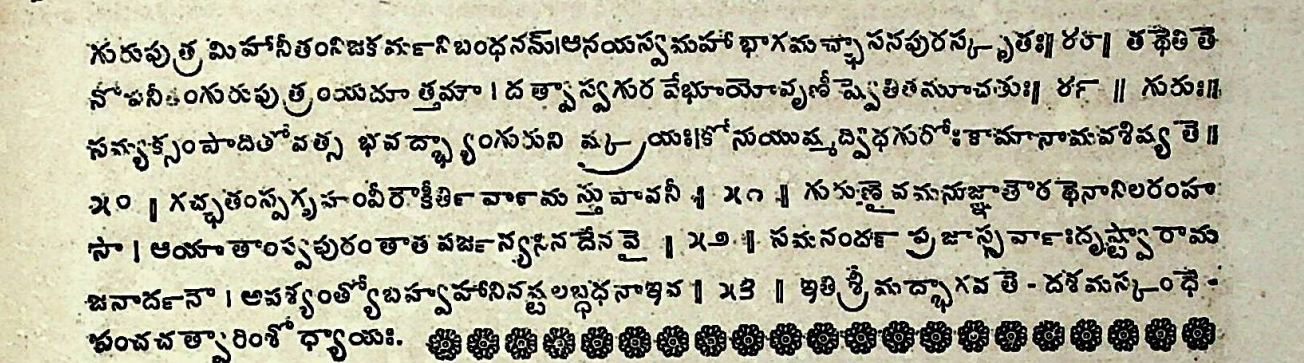 గురుపుత్ర మిహానీతంనిజకర్మనిబంధనమ్।ఆనయస్వమహా భాగమచ్ఛాసనపురస్కృతః॥ ౪౮॥ తథేతి తే
నోపనీతంగురుపుత్రంయదూ త్తమౌ । దత్వాస్వగుర వేభూయోవృణీ ష్వేతితమూచతుః॥ ౪౯ ॥ గురుః॥
సమ్యక్సంపాదితోవత్స భవద్భ్యాంగురుని ష్క్రయః।కోనుయుష్మద్విధగురోఃకామానామవశిష్యతే॥
౫౦ ॥ గచ్ఛతంస్వగృహంవీరౌకీర్తి ర్వామ స్తుపావనీ ॥ ౫౧ ॥ గురుణైవమనుజ్ఞాతౌర థేనానిలరంహ
సా । ఆయాతాంస్వపురంతాత పర్జన్యనినదేనవై ॥ ౫౨ ॥ సమనందన్ ప్రజాస్సర్వాఃదృష్ట్వారామ
జనార్దనౌ । అపశ్యంత్యోబహ్వహానినష్టలబ్ధధనాఇవ ॥ ౫౩ ॥ ఇతిశ్రీమద్భాగవతే - దశమస్కంధే -
పంచచత్వారింశోధ్యాయః.